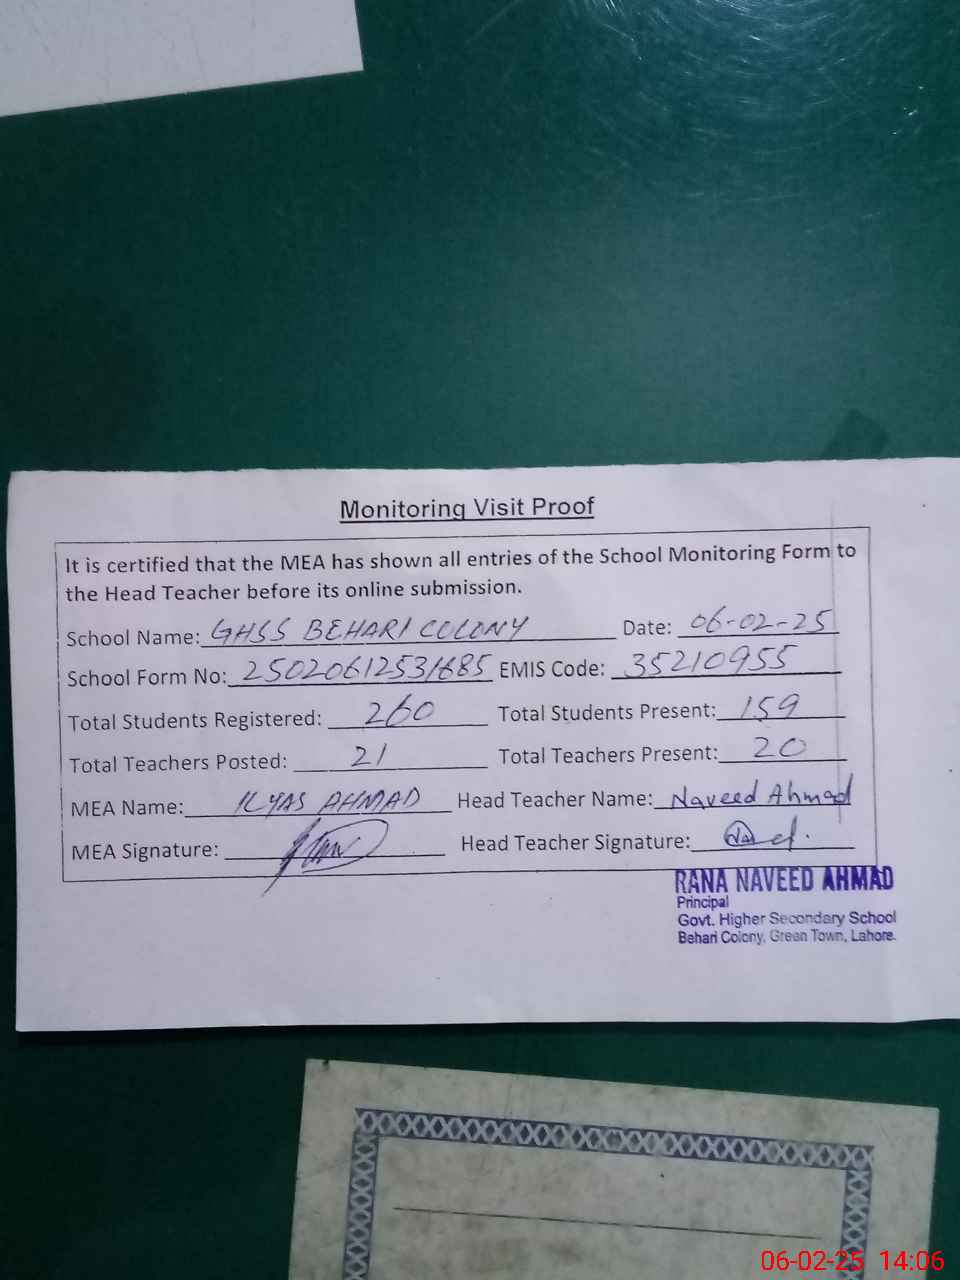 Monitoring Visit Proof
It is certified that the MEA has shown all entries of the School Monitoring Form to
the Head Teacher before its online submission.
School Name: GHSS BEHARI COLONY Date: 06-02-25
School Form No: 25020612531685 EMIS Code: 35210955
Total Students Registered: 260 Total Students Present: 159
Total Teachers Posted: 21 Total Teachers Present: 20
MEA Name: ILYAS AHMAD Head Teacher Name: Naveed Ahmad
MEA Signature: Head Teacher Signature:
RANA NAVEED AHMAD
Principal
Govt. Higher Secondary School
Behari Colony, Green Town, Lahore.
06-02-25 14:06